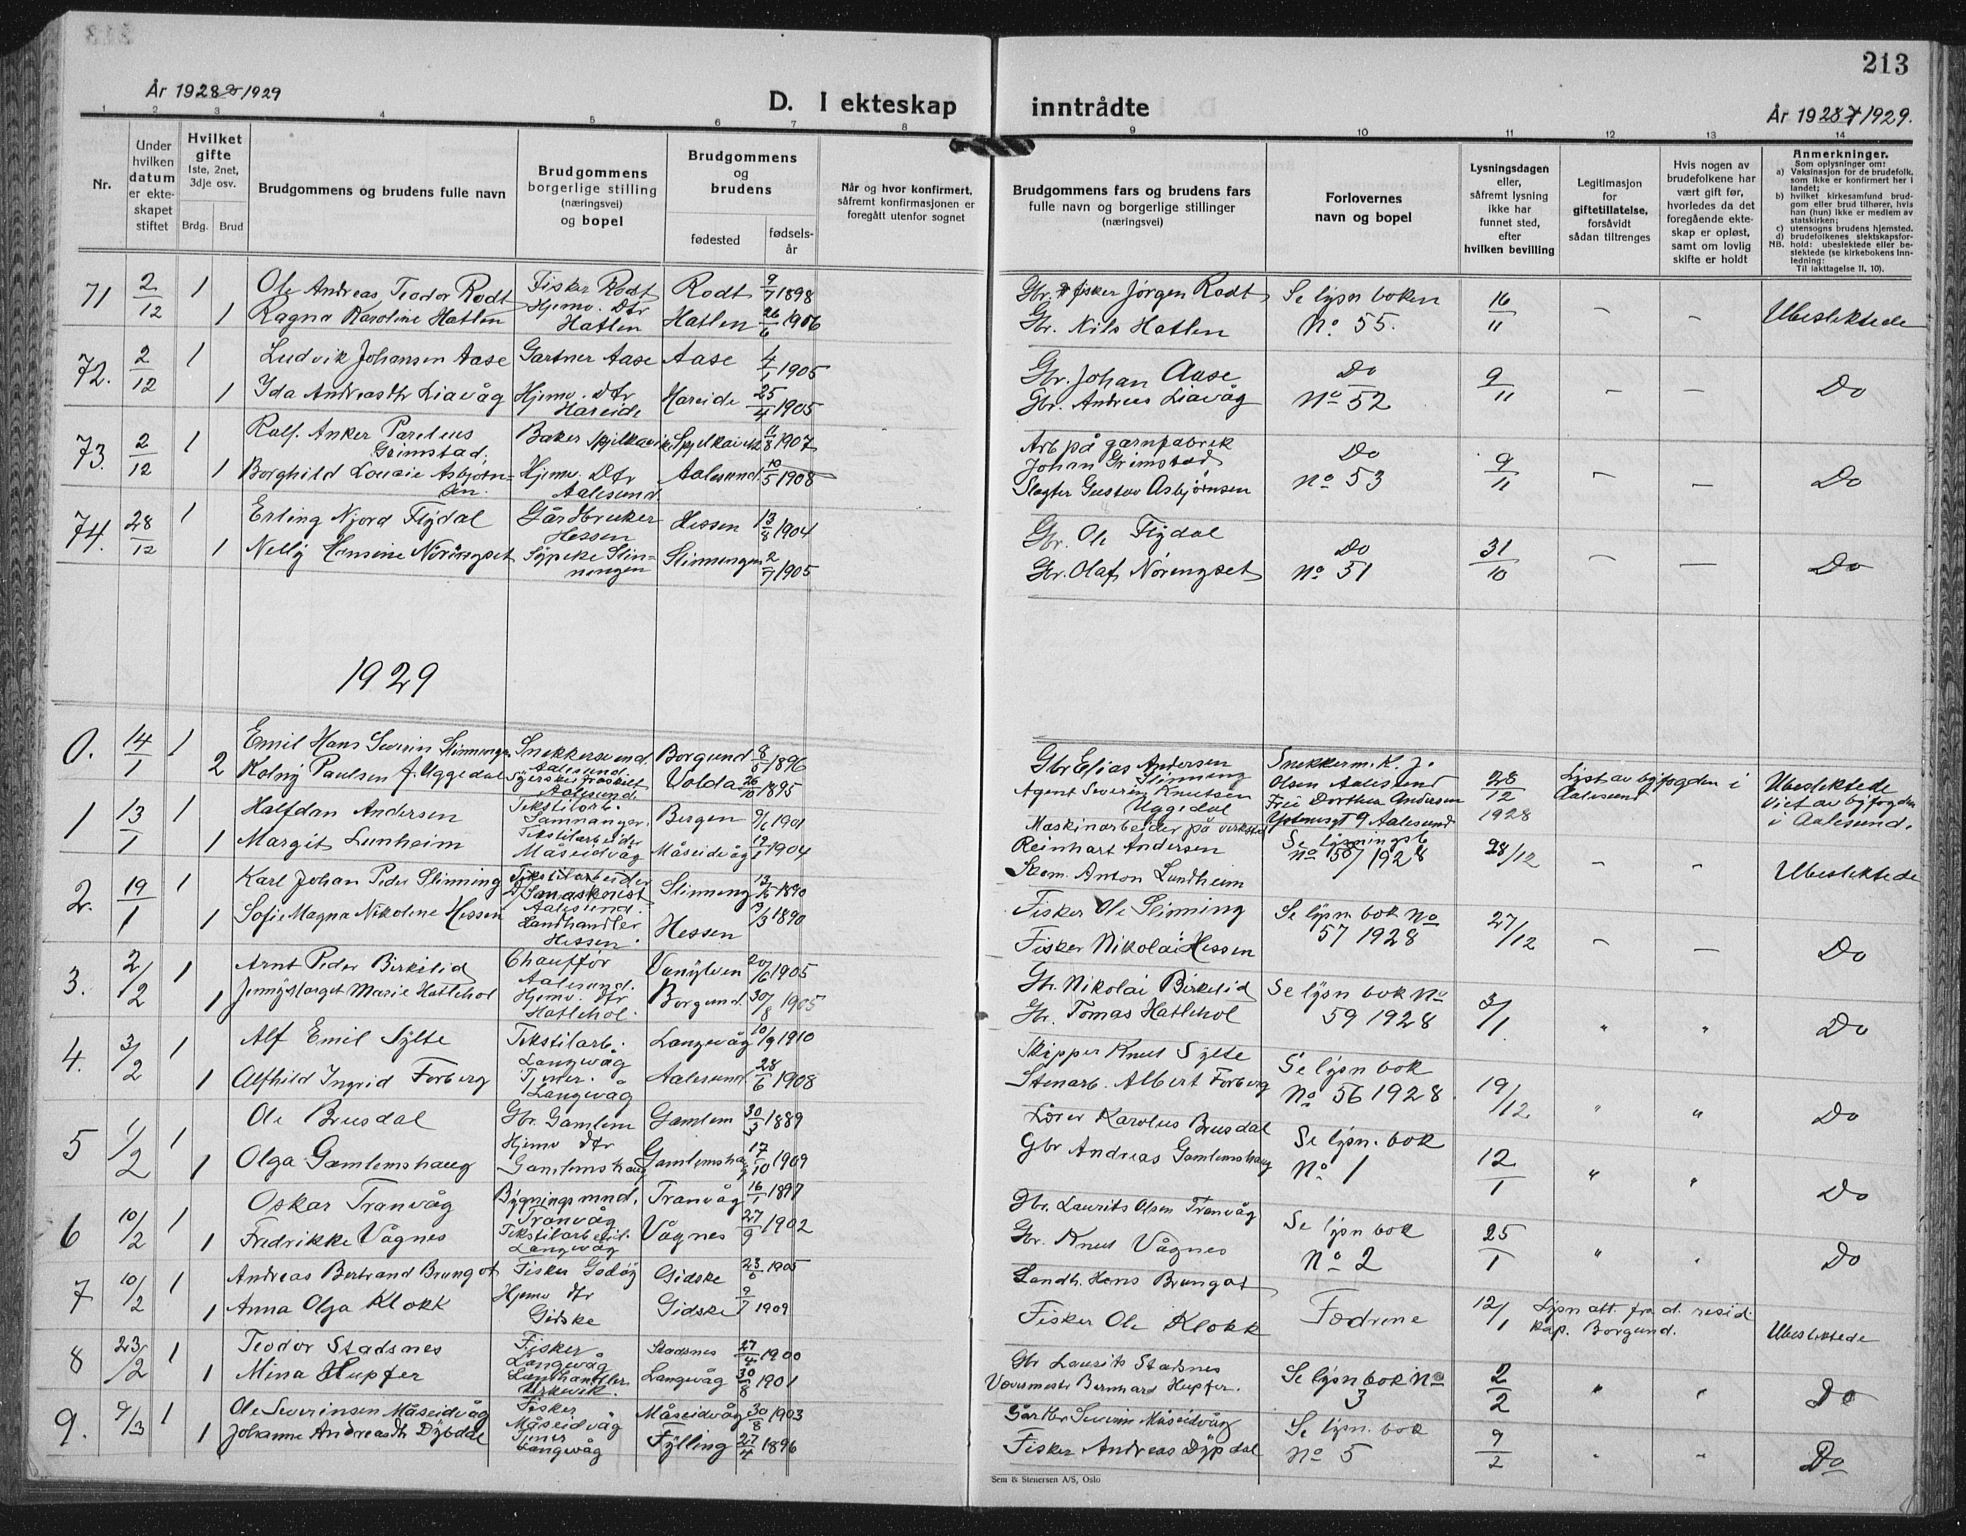 213
År 1928 & 1929
D. I ekteskap inntrådte
År 1928 & 1929.
1 2 3 4 5 6 7 8 9 10 11 12 13 14
Nr.
Under hvilken datum er ekteskapet stiftet
Hvilket gifte
1ste, 2net, 3dje osv.
Brdg. Brud
Brudgommens og brudens fulle navn
Brudgommens borgerlige stilling (næringsvei) og bopel
Brudgommens og brudens
fødested
fødselsår
Når og hvor konfirmert, såfremt konfirmasjonen er foregått utenfor sognet
Brudgommens fars og brudens fars fulle navn og borgerlige stillinger (næringsvei)
Forlovernes navn og bopel
Lysningsdagen eller, såfremt lysning ikke har funnet sted, efter hvilken bevilling
Legitimasjon for giftetillatelse, forsåvidt sådan tiltrenges
Hvis nogen av brudefolkene har vært gift før, hvorledes da det foregående ekteskap er opløst, samt om lovlig skifte er holdt
Anmerkninger.
Som oplysninger om:
a) Vaksinasjon for de brudefolk, som ikke er konfirmert her i landet;
b) hvilket kirkesamfund brudgom eller brud tilhører, hvis han (hun) ikke er medlem av statskirken;
c) utensogns brudens hjemsted.
d) brudefolkenes slektskapsforhold: ubeslektede eller beslektede (se kirkebokens Innledning:
NB. Til iakttagelse II, 10).
71 2/12 1 Ole Andreas Teodor Rødt Fisker Rødt Rødt 9/7 1898 Gbr. & fisker Jørgen Rødt Se lysn boken 16/11 – – Ubeslektede
1 Ragna Karoline Hatlen Hjemv. Dtr Hatlen Hatlen 26/6 1906 Gbr. Nils Hatlen No 55.
72. 2/12 1 Ludvik Johansen Aase Gartner Aase Aase 4/1 1905 Gbr. Johan Aase Do 9/11 – – Do
1 Ida Andreasdtr Liavåg Hjemv. Dtr Hareide Hareide 25/4 1905 Gbr. Andreas Liavåg No 52
73. 2/12 1 Ralf. Anker Parelius Grimstad. Baker Spjelkavik Spjelkavik 11/8 1907 Arb på garnfabrik Johan Grimstad Do 9/11 – – Do
1 Borghild Lovise Asbjørnsen. Hjemv. Dtr Aalesund Aalesund 10/5 1908 Slagter Gustav Asbjørnsen No 53
74. 28/12 1 Erling Njord Flydal Gårdbruker Hessen Hessen 13/8 1904 Gbr. Ole Flydal Do 31/10 – – Do
1 Nelly Hansine Nøringset Sypike Slinningen Slinningen 2/7 1905 Gbr. Olaf Nøringset No 51
1929
0. 14/1 1 Emil Hans Severin Slinningen Snekkersvend. Aalesund. Borgund 9/5 1896 Gbr Elias Andersen Slinning Snekkerm. K. J. Olsen Aalesund 28/12 1928 List av byfogden i Aalesund Ubeslektede
2 Kolny Paulsen f. Uggedal Syerske fraskilt Aalesund. Volda 26/10 1895 Agent Severin Knutsen Uggedal Frie Dorthea Andersen 9 Aalesund Viet av byfogden i Aalesund.
1 13/1 1 Halfdan Andersen Tekstilarb. Samnanger. Bergen 9/6 1901 Maskinarbeider på verksted Reinhart Andersen Se lysningsb No 50/1928 28/12 – – Ubeslektede
1 Margit Lunheim Tekstilarbeider Måseidvåg Måseidvåg 1904 Skom. Anton Lundheim
2. 19/1 1 Karl Johan Peder Slinning Tekstilarbeider Aalesund. Slinning 1890 Fisker Ole Slinning Se lysn. bok No 57 1928 27/12 – – Do
1 Sofie Magna Nikoline Hessen Handhandler Hessen. Hessen 1890 Fisker Nikolai Hessen
3. 2/2 1 Arnt Peder Birkelid Chauffør Aalesund. Vanylven 20/6 1905 Gb. Nikolai Birkelid Se lysn bok No 59 1928 3/1 " " Do
1 Jenny Marget Marie Hatlehol Hjemv. dtr Hatlehol. Borgund. 30/8 1905 Gbr. Tomas Hatlehol
4. 3/2 1 Alf Emil Sylte Tekstilarb. Langevåg Langevåg 10/9 1910 Skipper Knut Sylte Se lysn bok 19/12 " " Do
1 Alfhild Ingrid Forberg Tjener. Langevåg Aalesund. 28/6 1908 Stenarb. Albert Forberg No 56 1928.
5 1/2 1 Ole Brusdal Gbr. Gamlem Gamlem 30/3 1889 Lærer Karolus Brusdal Se lysn. bok 12/1 " " Do
1 Olga Gamlemshaug Hjemv dtr Gamlemshaug Gamlemshaug 17/10 1909 Gbr Andreas Gamlemshaug No 1
6 10/2 1 Oskar Tranvåg Bygningsmnd. Tranvåg Tranvåg 16/1 1897 Gbr. Laurits Olsen Tranvåg Se lysn bok 25/1 " " Do
1 Fredrikke Vågnes Tekstilarbeid. Langevåg Vågnes 27/9 1902 Gbr. Knut Vågnes No 2
7 10/2 1 Andreas Bertrand Brungot Fisker Godøy Gidske 23/6 1905 Landh. Hans Brungot Fædrene 12/1 Lysn att. fra d. resid. kap. Borgund. Ubeslektede
1 Anna Olga Klokk Hjemv dtr Gidske Gidske 9/7 1909 Fisker Ole Klokk
8 23/2 1 Teodor Stadsnes Fisker Langevåg Stadsnes 27/4 1900 Gbr Laurits Stadsnes Se lysn bok No 3 2/2 " " Do
1 Mina Hupfer Landhandler. Urkevik. Langevåg 30/8 1901 Vævemester Bernhard Hupfer.
9. 9/3 1 Ole Severinsen Måseidvåg Fisker Måseidvåg Måseidvåg 30/8 1903 Gårdbr Severin Måseidvåg Se lysn. bok 9/2 " " Do
1 Johanne Andreasdtr Dybdal Tjener Langevåg Fylling 27/4 1896 Fisker Andreas Dypdal No 5
Sem & Stenersen A/S, Oslo